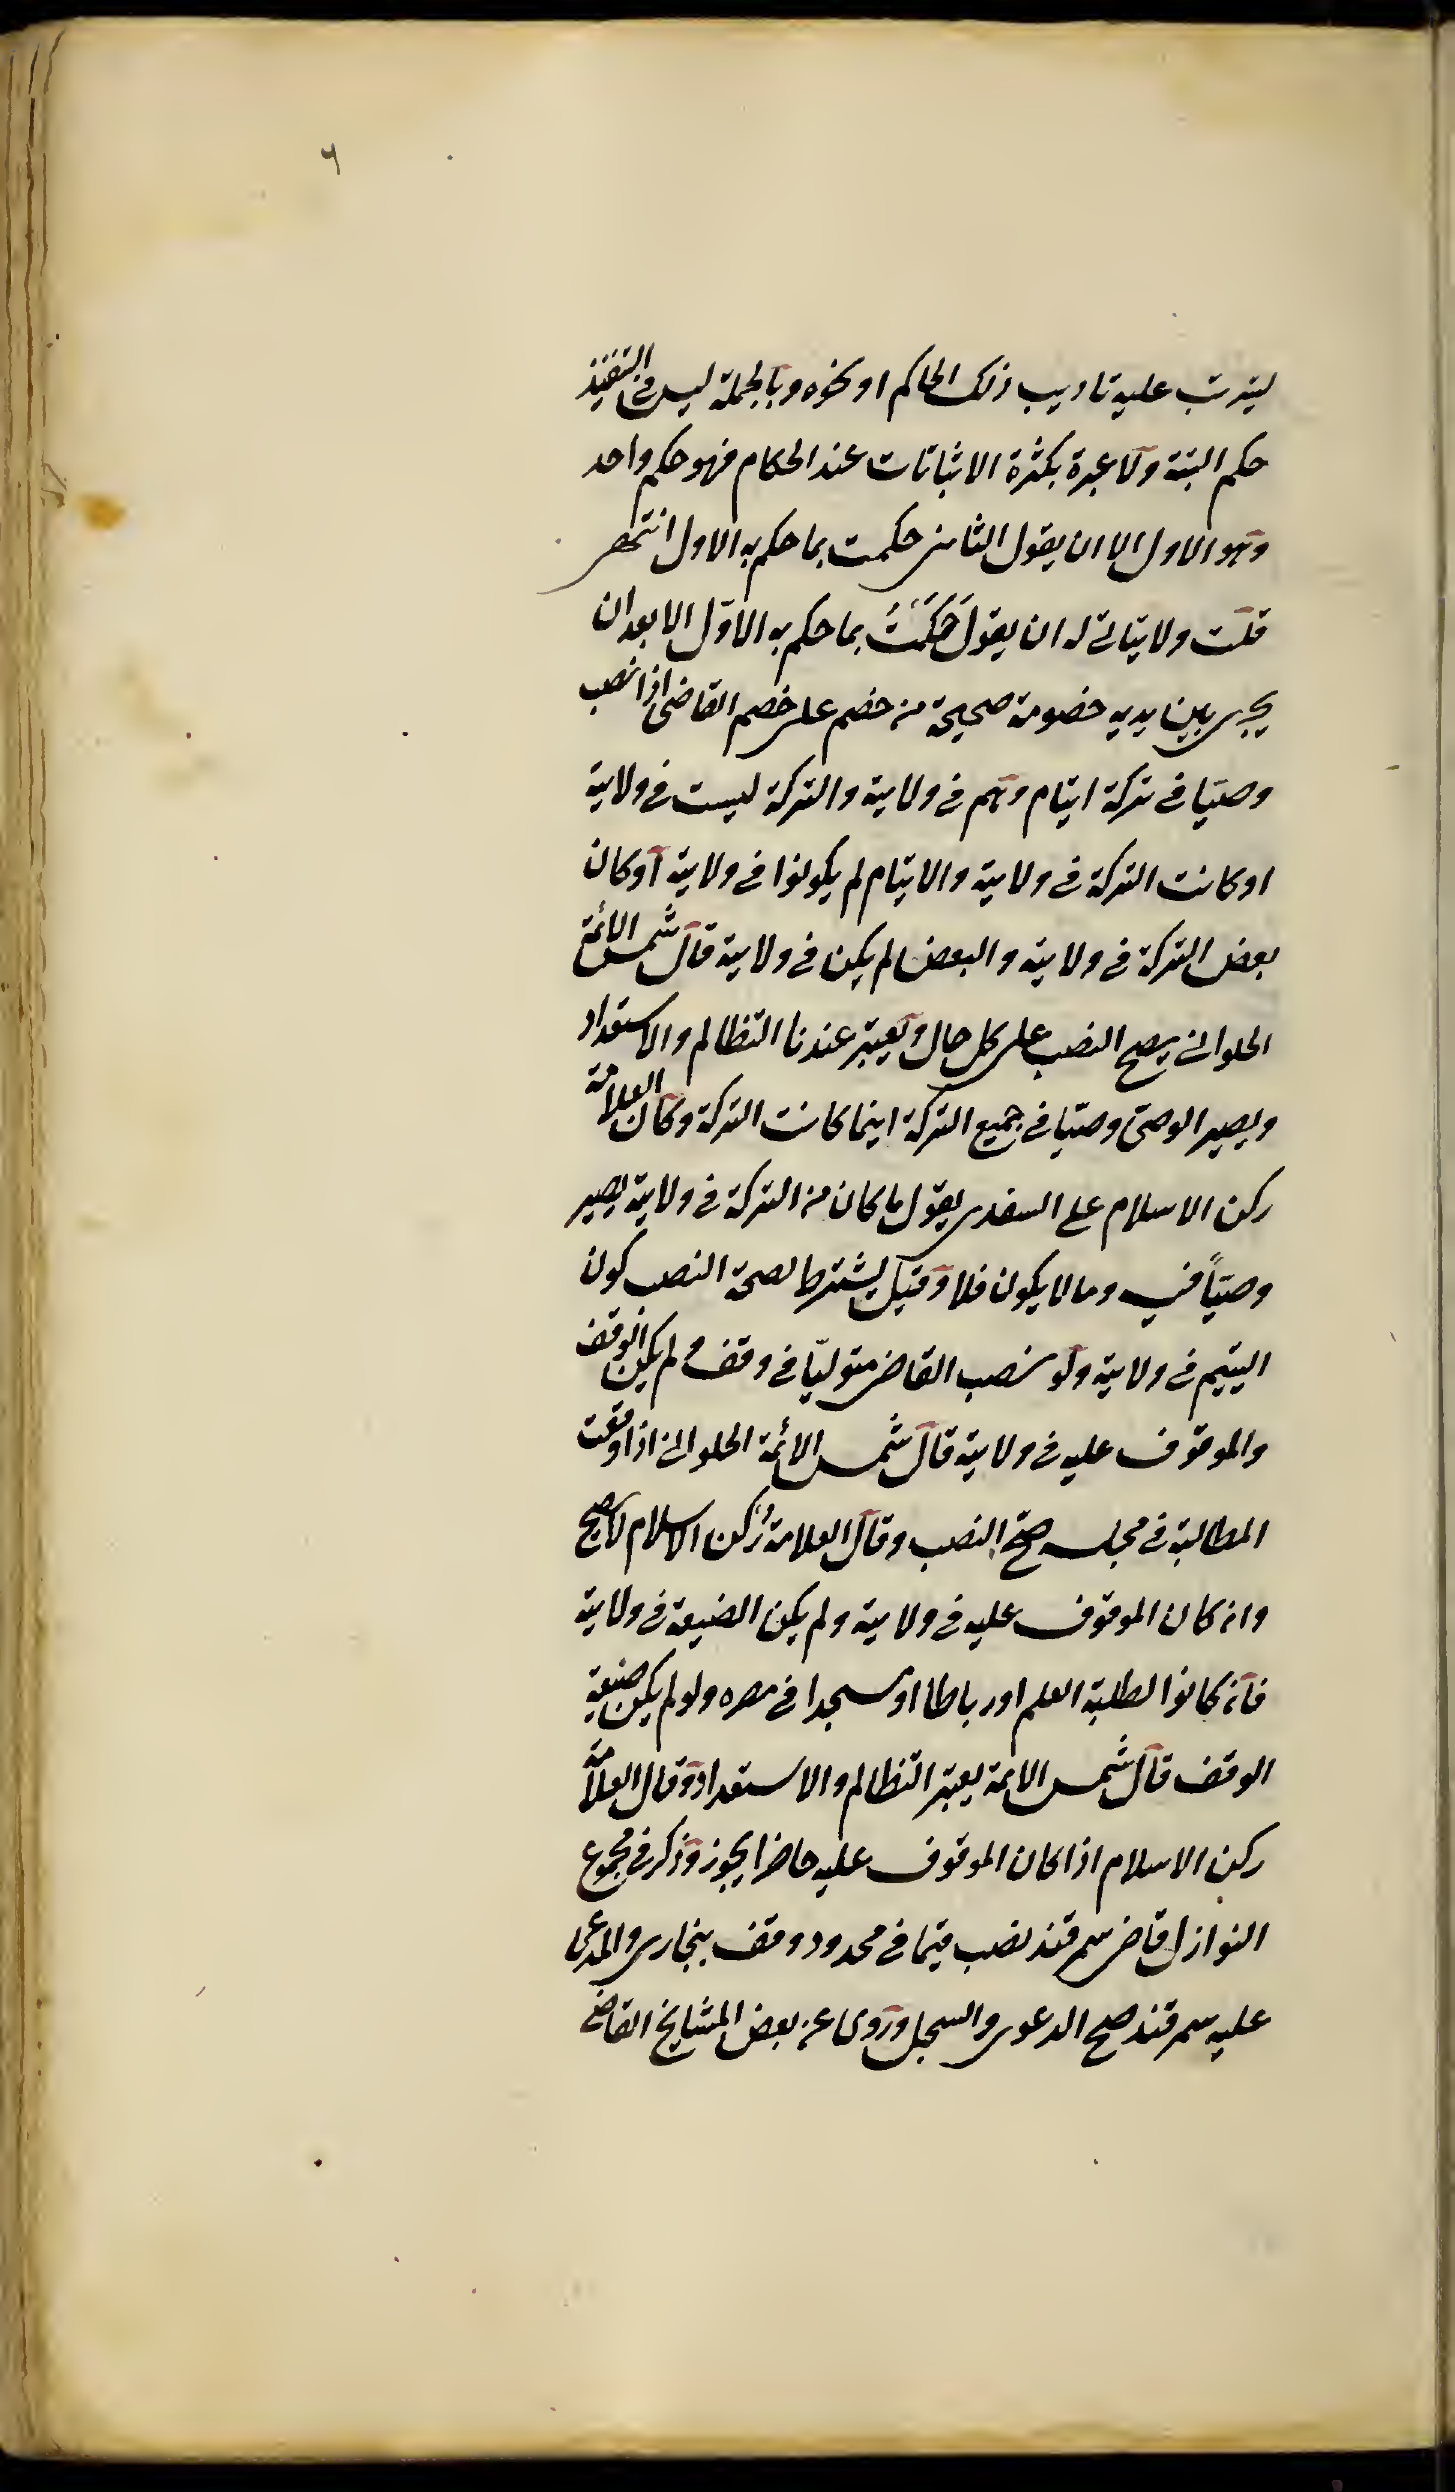 ٦
ليترتب عليه تاديب ذلك الحاكم او نحوه وبالجملة ليس في التنفيذ
حكم البتة ولا عبرة بكثرة الاثباتات عند الحكام فهو حكم واحد
وهو الاول الا ان يقول الثاني حكمت بما حكم به الاول انتهى
قلت ولا يتاتى له ان يقول حَكَمْتُ بما حكم به الاوّل الا بعد ان
يجرى بين يديه خصومة صحيحة من خصم على خصم القاضى اذا نصب
وصيّا في تركة ايتام وهم في ولايته والتركة ليست في ولايته
او كانت التركة في ولايته والايتام لم يكونوا في ولايته او كان
بعض التركة في ولايته والبعض لم يكن في ولايته قال شمس الائمة
الحلوانى يصح النصب على كل حال ويعتبر عندنا التظالم والاستعداد
ويصير الوصى وصيّا في جميع التركة اينما كانت التركة وكان العلامة
ركن الاسلام على السغدى يقول ما كان من التركة في ولايته يصير
وصيّاً فيه وما لا يكون فلا وقيل يشترط لصحة النصب كون
اليتيم في ولايته ولو نصب القاضى متوليّا في وقف ولم يكن الوقف
والموقوف عليه في ولايته قال شمس الائمة الحلوانى اذا وقعت
المطالبة في مجلسه صحّ النصب وقال العلامة رُكن الاسلام لا يصح
وان كان الموقوف عليه في ولايته ولم يكن الضيعة في ولايته
فان كانوا لطلبة العلم او رباطا او مسجدا في مصره ولو لم يكن ضيعة
الوقف قال شمس الائمة يعتبر التظالم والاستعداد وقال العلامّة
ركن الاسلام اذا كان الموقوف عليه حاضرا يجوز وذكر في مجموع
النوازل قاضى سمرقند نصب قيّما في محدود وقف ببخارى والمدعى
عليه سمرقند صح الدعوى والسجل وروى عن بعض المشايخ القاضى